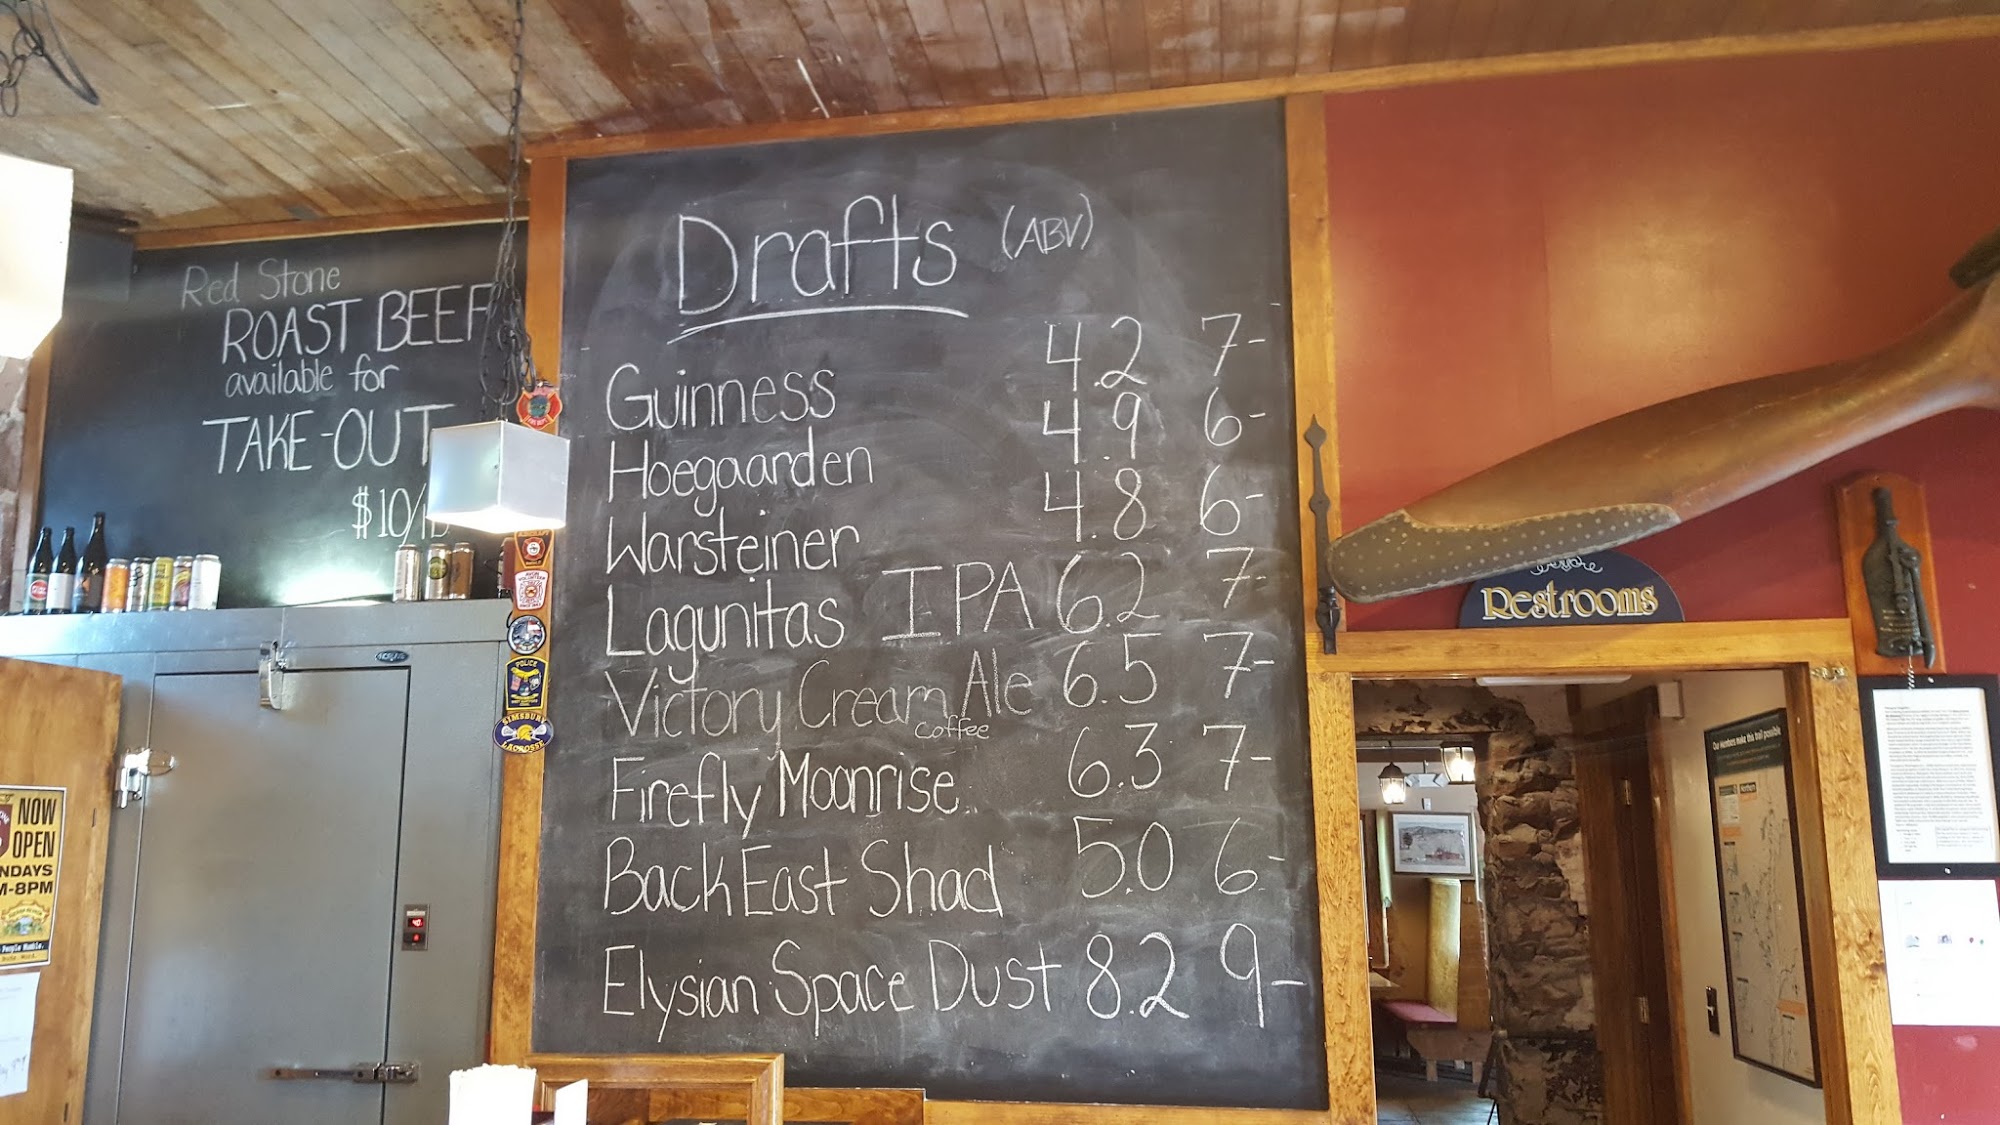 Red Stone
ROAST BEEF
available for
TAKE-OUT
$10/lb
Drafts (ABV)
Guinness 4.2 7-
Hoegaarden 4.9 6-
Warsteiner 4.8 6-
Lagunitas IPA 6.2 7-
Victory Cream Ale 6.5 7-
Coffee
Firefly Moonrise 6.3 7-
Back East Shad 5.0 6-
Elysian Space Dust 8.2 9-
Restrooms
POLICE
SIMSBURY
LACROSSE
NOW
OPEN
NDAYS
M-8PM
Our Members make this trail possible